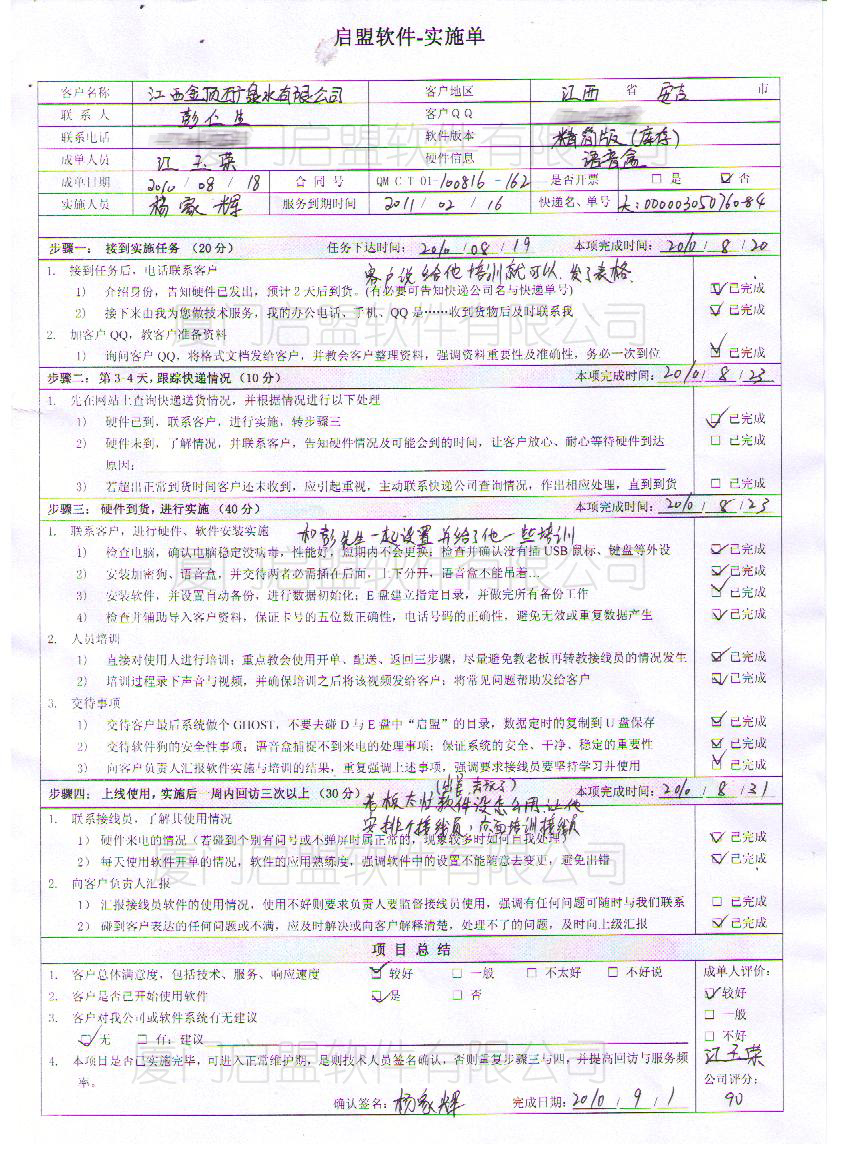 启盟软件-实施单
客户名称 江西金顶矿泉水有限公司 客户地区 江西 省 安吉 市
联系人 彭仁生 客户QQ
联系电话 软件版本 精简版(库存)
成单人员 江玉荣 硬件信息 语音盒
成单日期 2010 / 08 / 18 合同号 QMCT01-100816-162 是否开票 □ 是 ☑ 否
实施人员 杨家辉 服务到期时间 2011 / 02 / 16 快递名、单号 :00000305076084
步骤一: 接到实施任务 (20分) 任务下达时间: 2010 / 08 / 19 本项完成时间: 2010 / 8 / 20
1. 接到任务后,电话联系客户 客户说给他培训就可以.发了表格.
1) 介绍身份,告知硬件已发出,预计2天后到货。(有必要可告知快递公司名与快递单号) ☑ 已完成
2) 接下来由我为您做技术服务,我的办公电话、手机、QQ是……收到货物后及时联系我 ☑ 已完成
2. 加客户QQ,教客户准备资料
1) 询问客户QQ,将格式文档发给客户,并教会客户整理资料,强调资料重要性及准确性,务必一次到位 ☑ 已完成
步骤二: 第3-4天,跟踪快递情况 (10分) 本项完成时间: 2010 / 8 / 23
1. 先在网站上查询快递送货情况,并根据情况进行以下处理
1) 硬件已到,联系客户,进行实施,转步骤三 ☑ 已完成
2) 硬件未到,了解情况,并联系客户,告知硬件情况及可能会到的时间,让客户放心、耐心等待硬件到达 □ 已完成
原因:
3) 若超出正常到货时间客户还未收到,应引起重视,主动联系快递公司查询情况,作出相应处理,直到到货 □ 已完成
步骤三: 硬件到货,进行实施 (40分) 本项完成时间: 2010 / 8 / 23
1. 联系客户,进行硬件、软件安装实施 和彭先生一起设置并给了他一些培训
1) 检查电脑,确认电脑稳定没病毒,性能好,短期内不会更换;检查并确认没有插USB鼠标、键盘等外设 ☑ 已完成
2) 安装加密狗、语音盒,并交待两者必需插在后面,上下分开,语音盒不能吊着… ☑ 已完成
3) 安装软件,并设置自动备份,进行数据初始化;E盘建立指定目录,并做完所有备份工作 ☑ 已完成
4) 检查并辅助导入客户资料,保证卡号的五位数正确性,电话号码的正确性,避免无效或重复数据产生 ☑ 已完成
2. 人员培训
1) 直接对使用人进行培训;重点教会使用开单、配送、返回三步骤,尽量避免教老板再转教接线员的情况发生 ☑ 已完成
2) 培训过程录下声音与视频,并确保培训之后将该视频发给客户;将常见问题帮助发给客户 ☑ 已完成
3. 交待事项
1) 交待客户最后系统做个GHOST,不要去碰D与E盘中“启盟”的目录,数据定时的复制到U盘保存 ☑ 已完成
2) 交待软件狗的安全性事项;语音盒捕捉不到来电的处理事项;保证系统的安全、干净、稳定的重要性 ☑ 已完成
3) 向客户负责人汇报软件实施与培训的结果,重复强调上述事项,强调要求接线员要坚持学习并使用 ☑ 已完成
步骤四: 上线使用,实施后一周内回访三次以上 (30分) 本项完成时间: 2010 / 8 / 31
老板太忙软件没怎么用.让他
1. 联系接线员,了解其使用情况 安排个接线员,应再培训接线员
1) 硬件来电的情况(若碰到个别有问号或不弹屏时属正常的,现象较多时如何自我处理) ☑ 已完成
2) 每天使用软件开单的情况,软件的应用熟练度,强调软件中的设置不能随意去变更,避免出错 ☑ 已完成
2. 向客户负责人汇报
1) 汇报接线员软件的使用情况,使用不好则要求负责人要监督接线员使用,强调有任何问题可随时与我们联系 □ 已完成
2) 碰到客户表达的任何问题或不满,应及时解决或向客户解释清楚,处理不了的问题,及时向上级汇报 ☑ 已完成
项目总结
1. 客户总体满意度,包括技术、服务、响应速度 ☑ 较好 □ 一般 □ 不太好 □ 不好说 成单人评价:
2. 客户是否已开始使用软件 ☑ 是 □ 否 ☑ 较好
3. 客户对我公司或软件系统有无建议 □ 一般
☑ 无 □ 有: 建议 □ 不好
4. 本项目是否已实施完毕,可进入正常维护期,是则技术人员签名确认,否则重复步骤三与四,并提高回访与服务频 江玉荣
率。 公司评分:
确认签名: 杨家辉 完成日期: 2010 / 9 / 1 90
厦门启盟软件有限公司
厦门启盟软件有限公司
厦门启盟软件有限公司
厦门启盟软件有限公司
厦门启盟软件有限公司